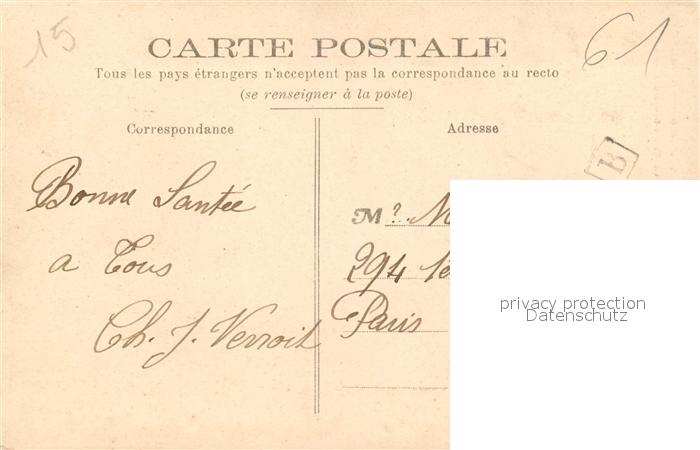 15
61
CARTE POSTALE
Tous les pays étrangers n'acceptent pas la correspondance au recto
(se renseigner à la poste)
Correspondance
Adresse
B
Bonne Santée
a Tous
Ch. J.
M
294
Paris
privacy protection
Datenschutz